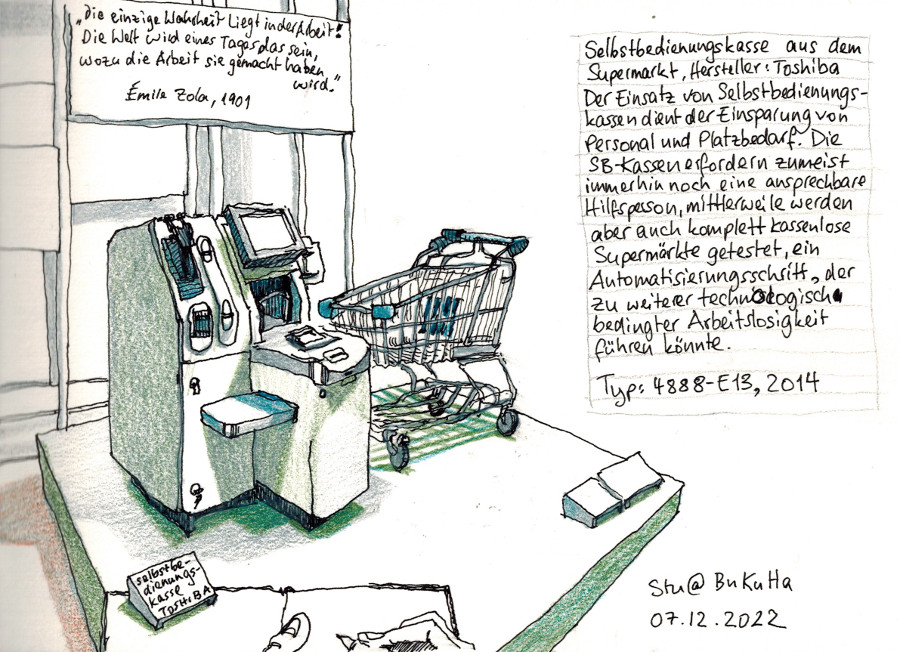 „Die einzige Wahrheit liegt in der Arbeit!
Die Welt wird eines Tages das sein,
wozu die Arbeit sie gemacht haben
wird."
Émile Zola, 1901
Selbstbedienungskasse aus dem
Supermarkt, Hersteller: Toshiba
Der Einsatz von Selbstbedienungs-
kassen dient der Einsparung von
Personal und Platzbedarf. Die
SB-Kassen erfordern zumeist
immerhin noch eine ansprechbare
Hilfsperson, mittlerweile werden
aber auch komplett kassenlose
Supermärkte getestet, ein
Automatisierungsschritt, der
zu weiterer technologisch
bedingter Arbeitslosigkeit
führen könnte.
Typ: 4888-E13, 2014
selbstbe-
dienungs-
kasse
TOSHIBA
Stu@ BuKuHa
07.12.2022